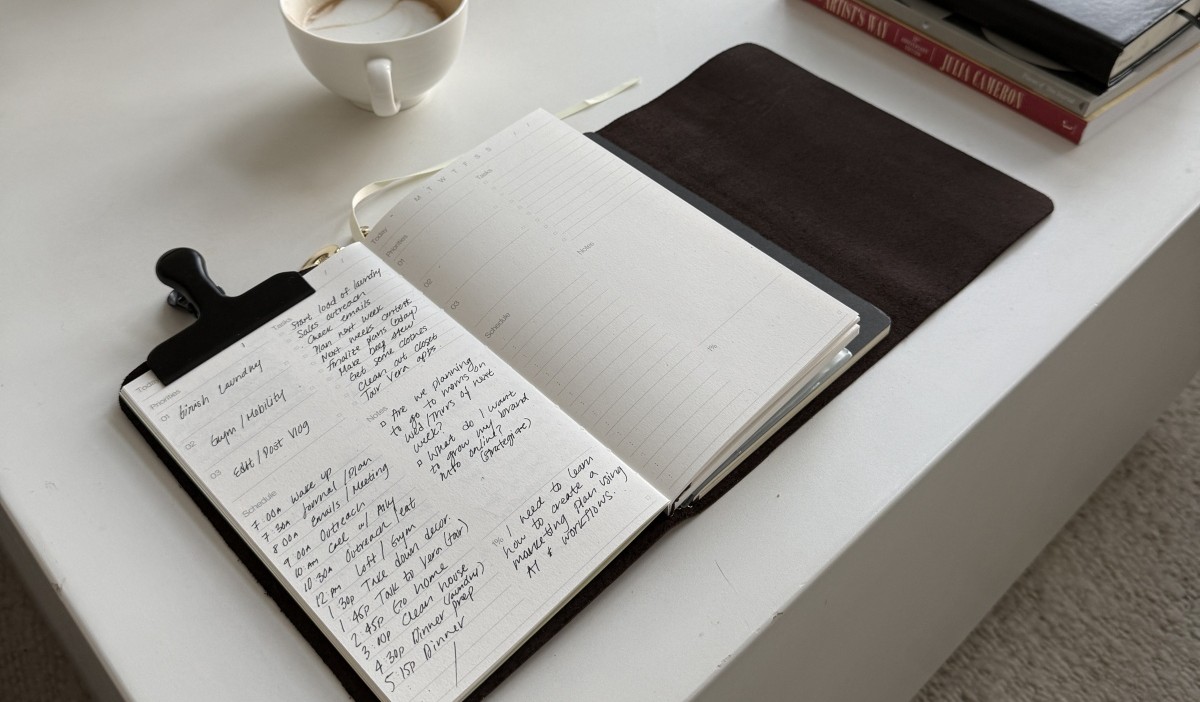 ARTIST'S WAY
JULIA CAMERON
Today
Priorities
01 finish laundry
02 Gym / Mobility
03 Edit / Post Vlog
Schedule
7:00A Wake up
7:30A Journal / Plan
8:00A Emails / Meeting
9:00A Outreach
10 AM Call w/
10:30A Outreach / eat
12 pm Loft / Gym
1:30p Take down decor
1:45p Talk to Vera (tair)
2:45p Go home
3:00p Clean house
(laundry)
4:30p Dinner prep
5:15p Dinner
Tasks
Start load of laundry
Sales outreach
Check emails
Plan next week
Next weeks content
Finalize plans (today)
Make beef stew
Get some clothes
Clean out closet
Tair Vera apts
Notes
Are we planning
to go to moms on
Wed / Thurs of next
week?
What do I want
to grow my brand
into online?
(strategize)
1% I need to learn
how to create a
marketing plan using
AI & workflows.
M T W T F S S / /
Today
Priorities
01
02
03
Schedule
Tasks
Notes
1%